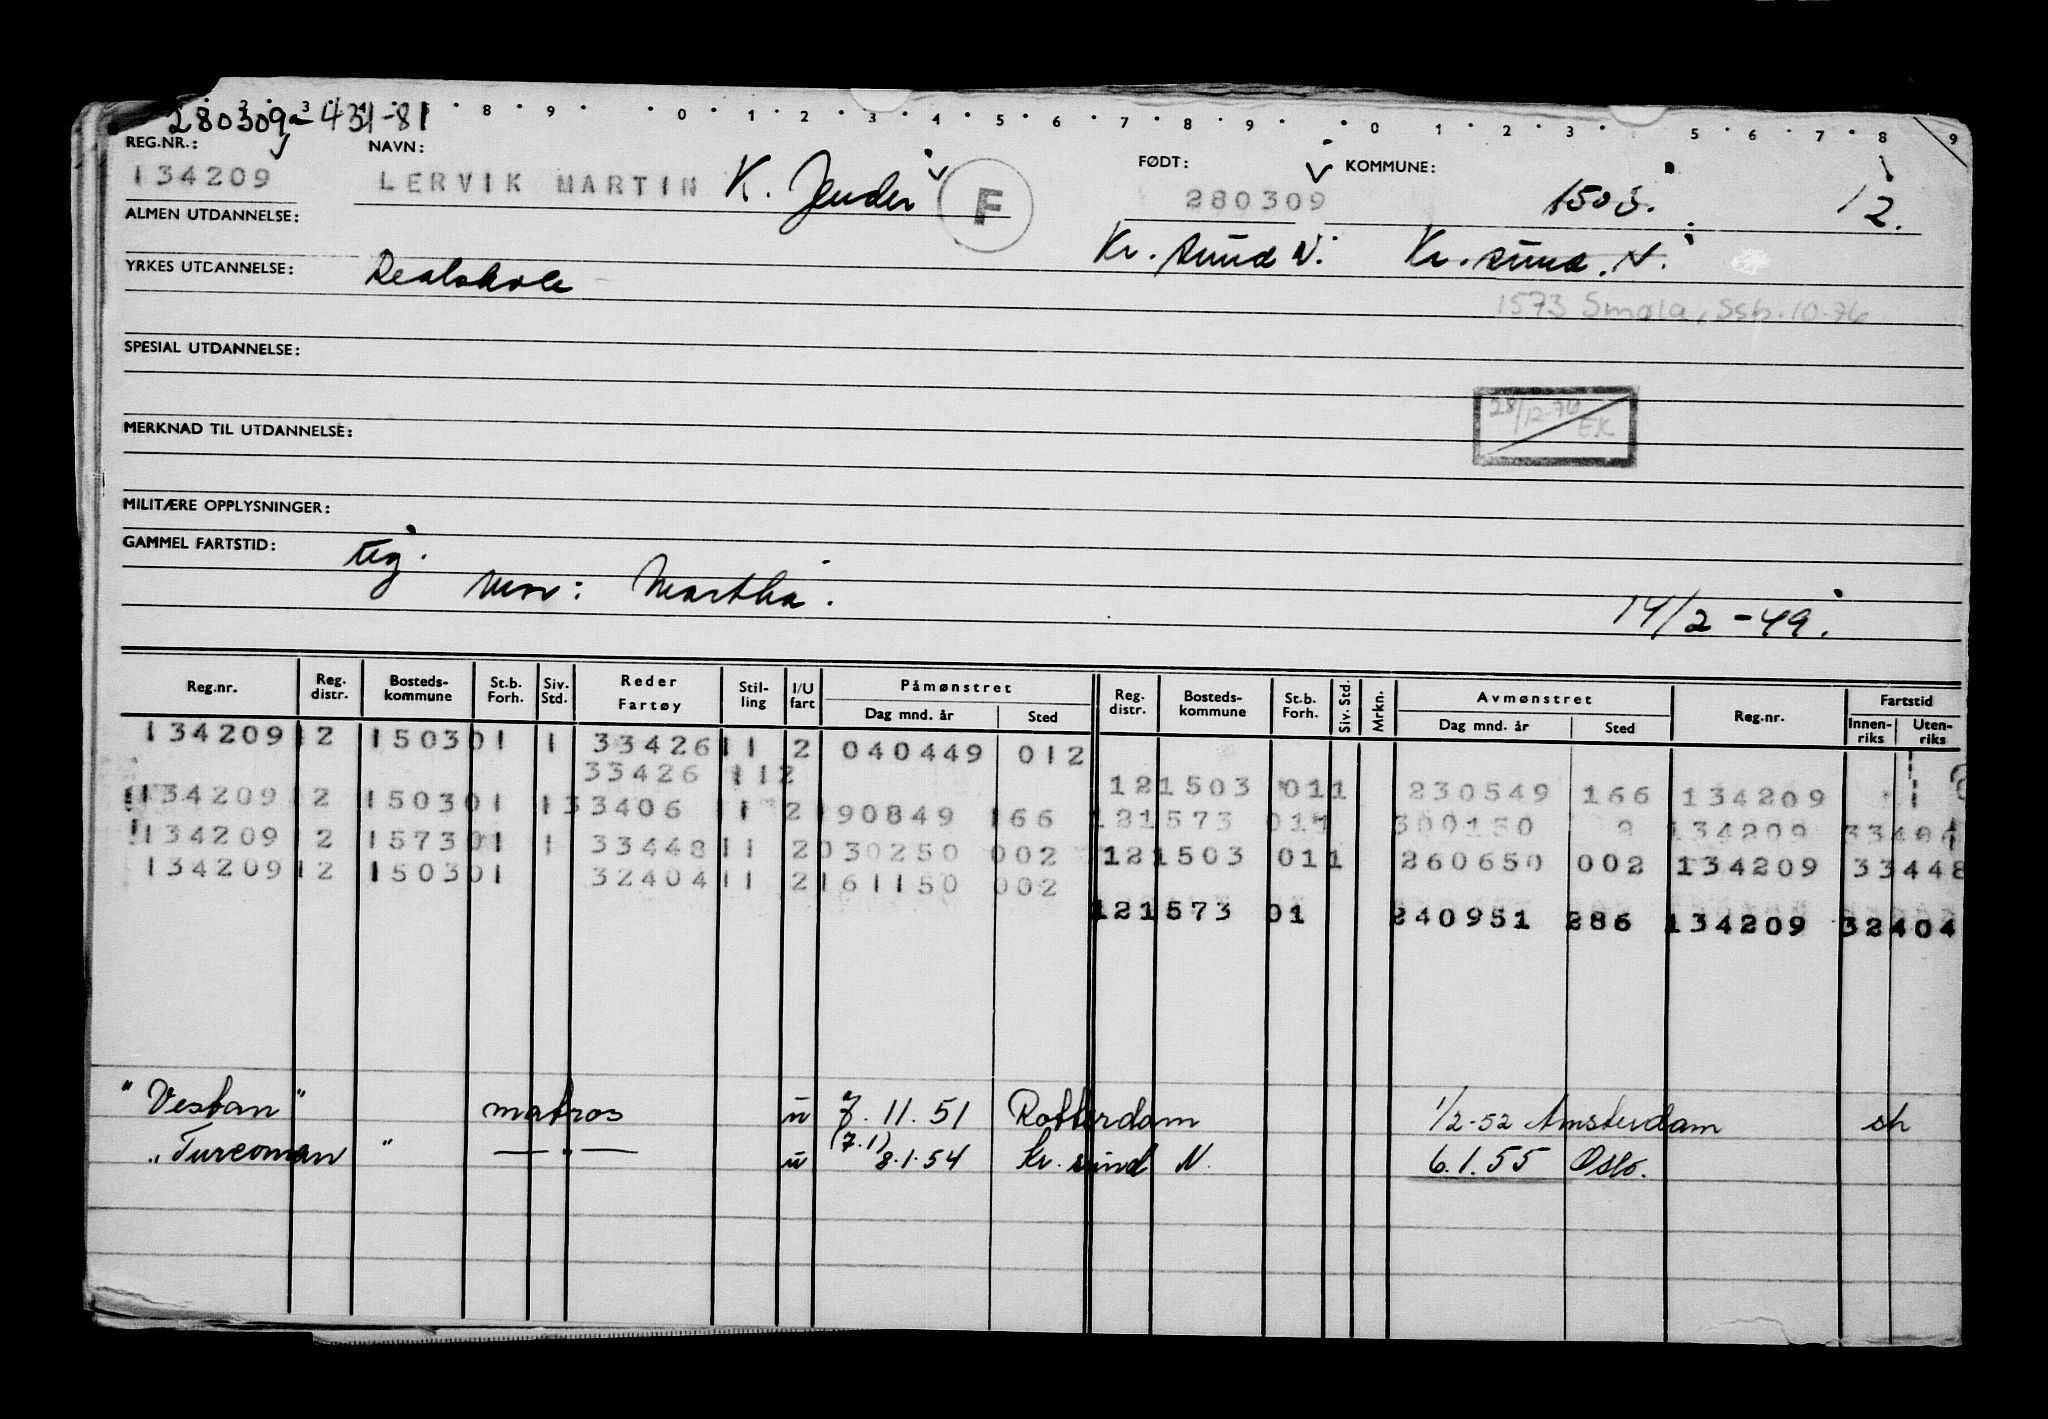 280309-431-81
REG.NR.: NAVN: FØDT: KOMMUNE:
134209 LERVIK MARTIN K. F 280309 1503. 12.
ALMEN UTDANNELSE: Kr.sund N. Kr.sund.N.
YRKES UTDANNELSE: Realskole
1573 Smøla, Ssb. 10-76
SPESIAL UTDANNELSE:
28/12-76 EK
MERKNAD TIL UTDANNELSE:
MILITÆRE OPPLYSNINGER:
GAMMEL FARTSTID:
Mor: Martha. 14/2-49.
Reg.nr. Reg. distr. Bosteds-kommune St.b. Forh. Siv. Std. Reder Fartøy Stil-ling I/U fart Påmønstret Dag mnd. år Sted Reg. distr. Bosteds-kommune St.b. Forh. Siv. Std. Mrkn. Avmønstret Dag mnd. år Sted Reg.nr. Fartstid Innen-riks Uten-riks
134209 12 1503 01 1 33426 11 2 040449 012
33426 112 12 1503 011 230549 166 134209
134209 12 1503 01 1 33406 11 2 190849 166 12 1573 011 300150 134209 33406
134209 12 1573 01 1 33448 11 2 030250 002 12 1503 011 260650 002 134209 33448
134209 12 1503 01 32404 11 2 161150 002
12 1573 01 240951 286 134209 32404
"Vestan" matros u 7.11.51 Rotterdam 1/2-52 Amsterdam sh
"Turcoman" — " — u (7.1) 8.1.54 Kr.sund N. 6.1.55 Oslo.